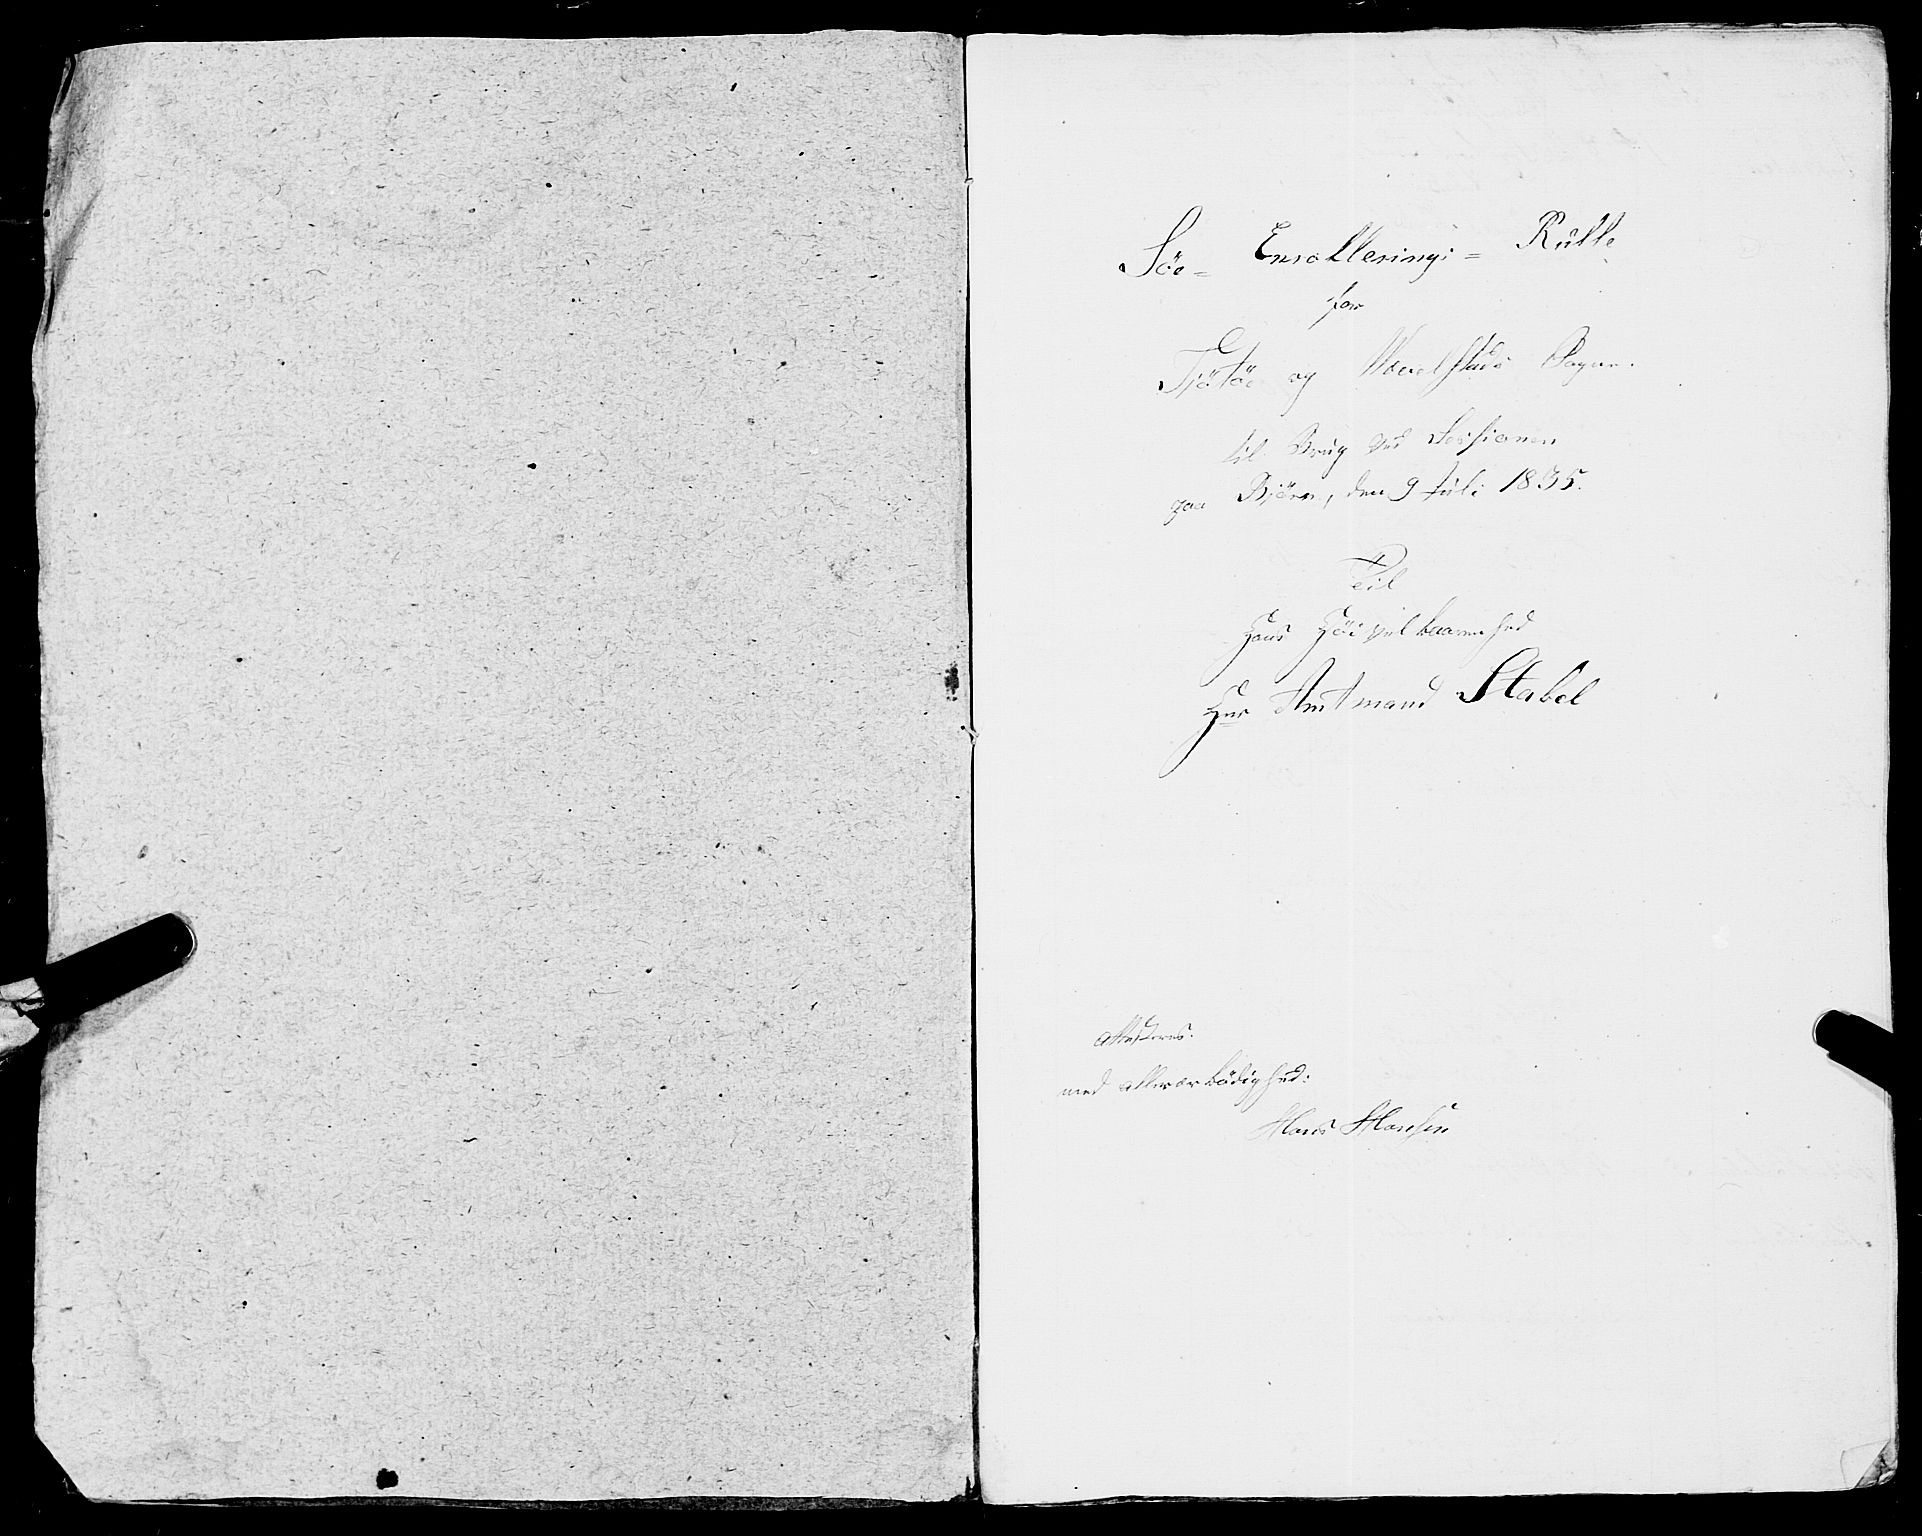 Söe- Enrollerings = Rulle
for
Tjötöe og Wevelstads Sogne.
til Brug ved Sessionen
paa Bjørn, den 9 Juli 1835.
Til
Hans Höivelbaarenhed
Herr Amtmand Stabel
Attesteres:
med allerærbödighed:
Hans Hansen